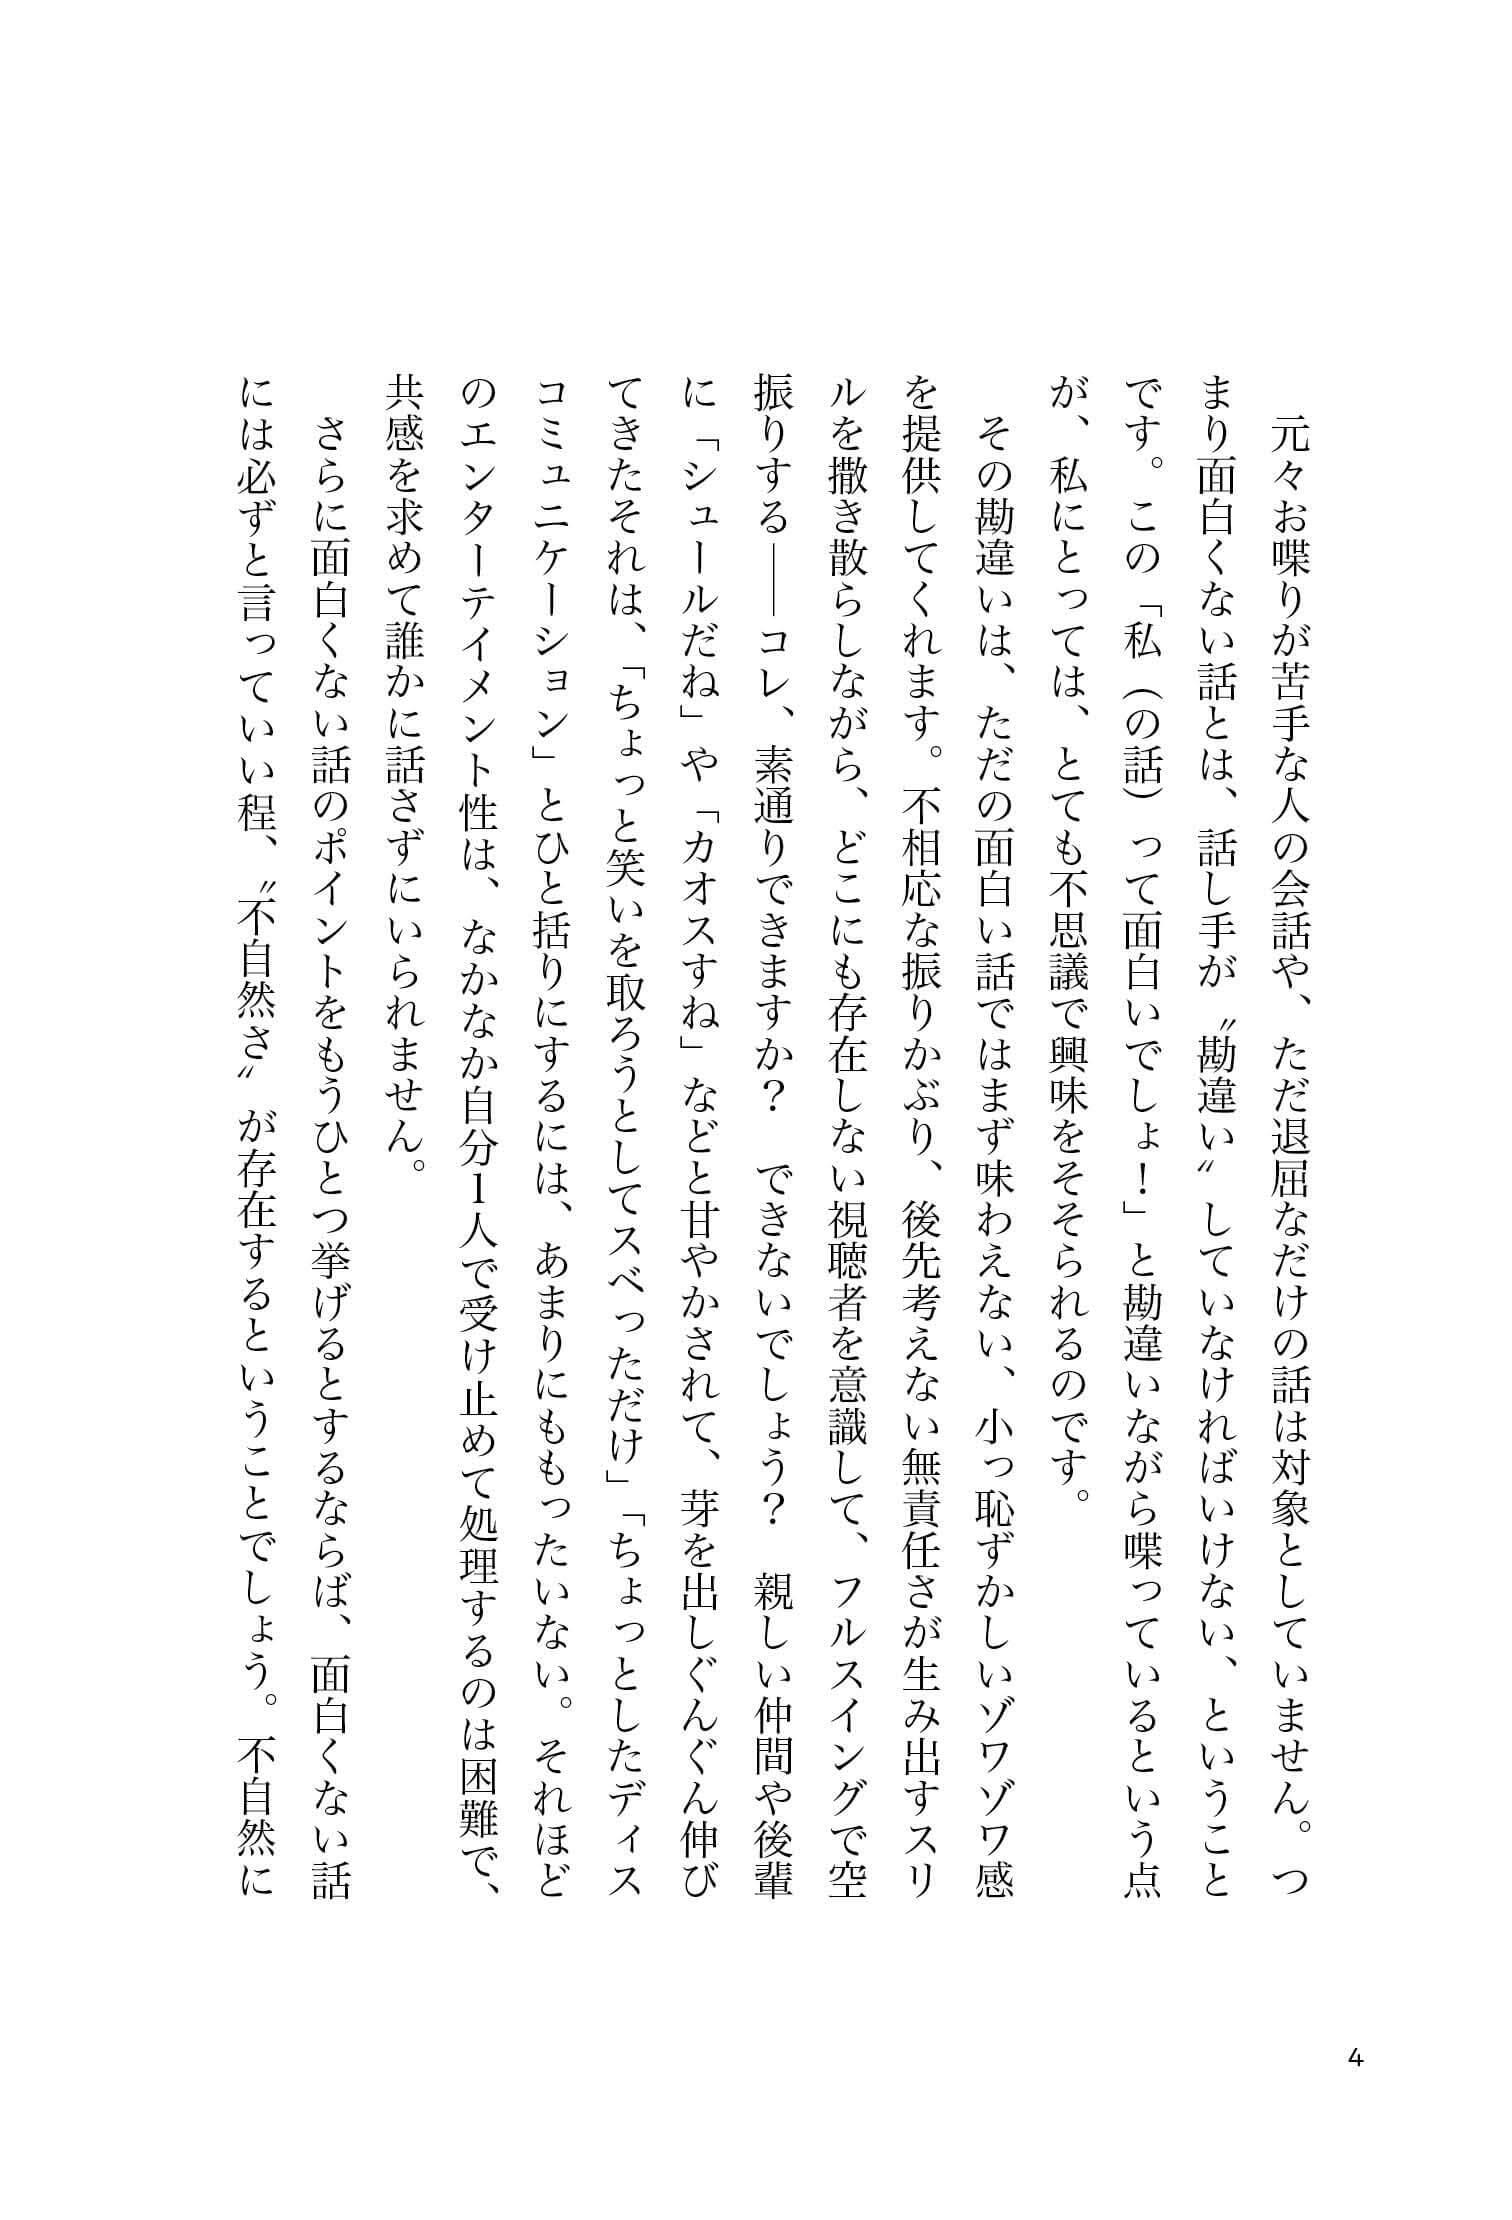 元々お喋りが苦手な人の会話や、ただ退屈なだけの話は対象としていません。つ
まり面白くない話とは、話し手が〝勘違い〟していなければいけない、ということ
です。この「私（の話）って面白いでしょ！」と勘違いながら喋っているという点
が、私にとっては、とても不思議で興味をそそられるのです。
　その勘違いは、ただの面白い話ではまず味わえない、小っ恥ずかしいゾワゾワ感
を提供してくれます。不相応な振りかぶり、後先考えない無責任さが生み出すスリ
ルを撒き散らしながら、どこにも存在しない視聴者を意識して、フルスイングで空
振りする――コレ、素通りできますか？　できないでしょう？　親しい仲間や後輩
に「シュールだね」や「カオスすね」などと甘やかされて、芽を出しぐんぐん伸び
てきたそれは、「ちょっと笑いを取ろうとしてスベっただけ」「ちょっとしたディス
コミュニケーション」とひと括りにするには、あまりにももったいない。それほど
のエンターテイメント性は、なかなか自分1人で受け止めて処理するのは困難で、
共感を求めて誰かに話さずにいられません。
　さらに面白くない話のポイントをもうひとつ挙げるとするならば、面白くない話
には必ずと言っていい程、〝不自然さ〟が存在するということでしょう。不自然に
4